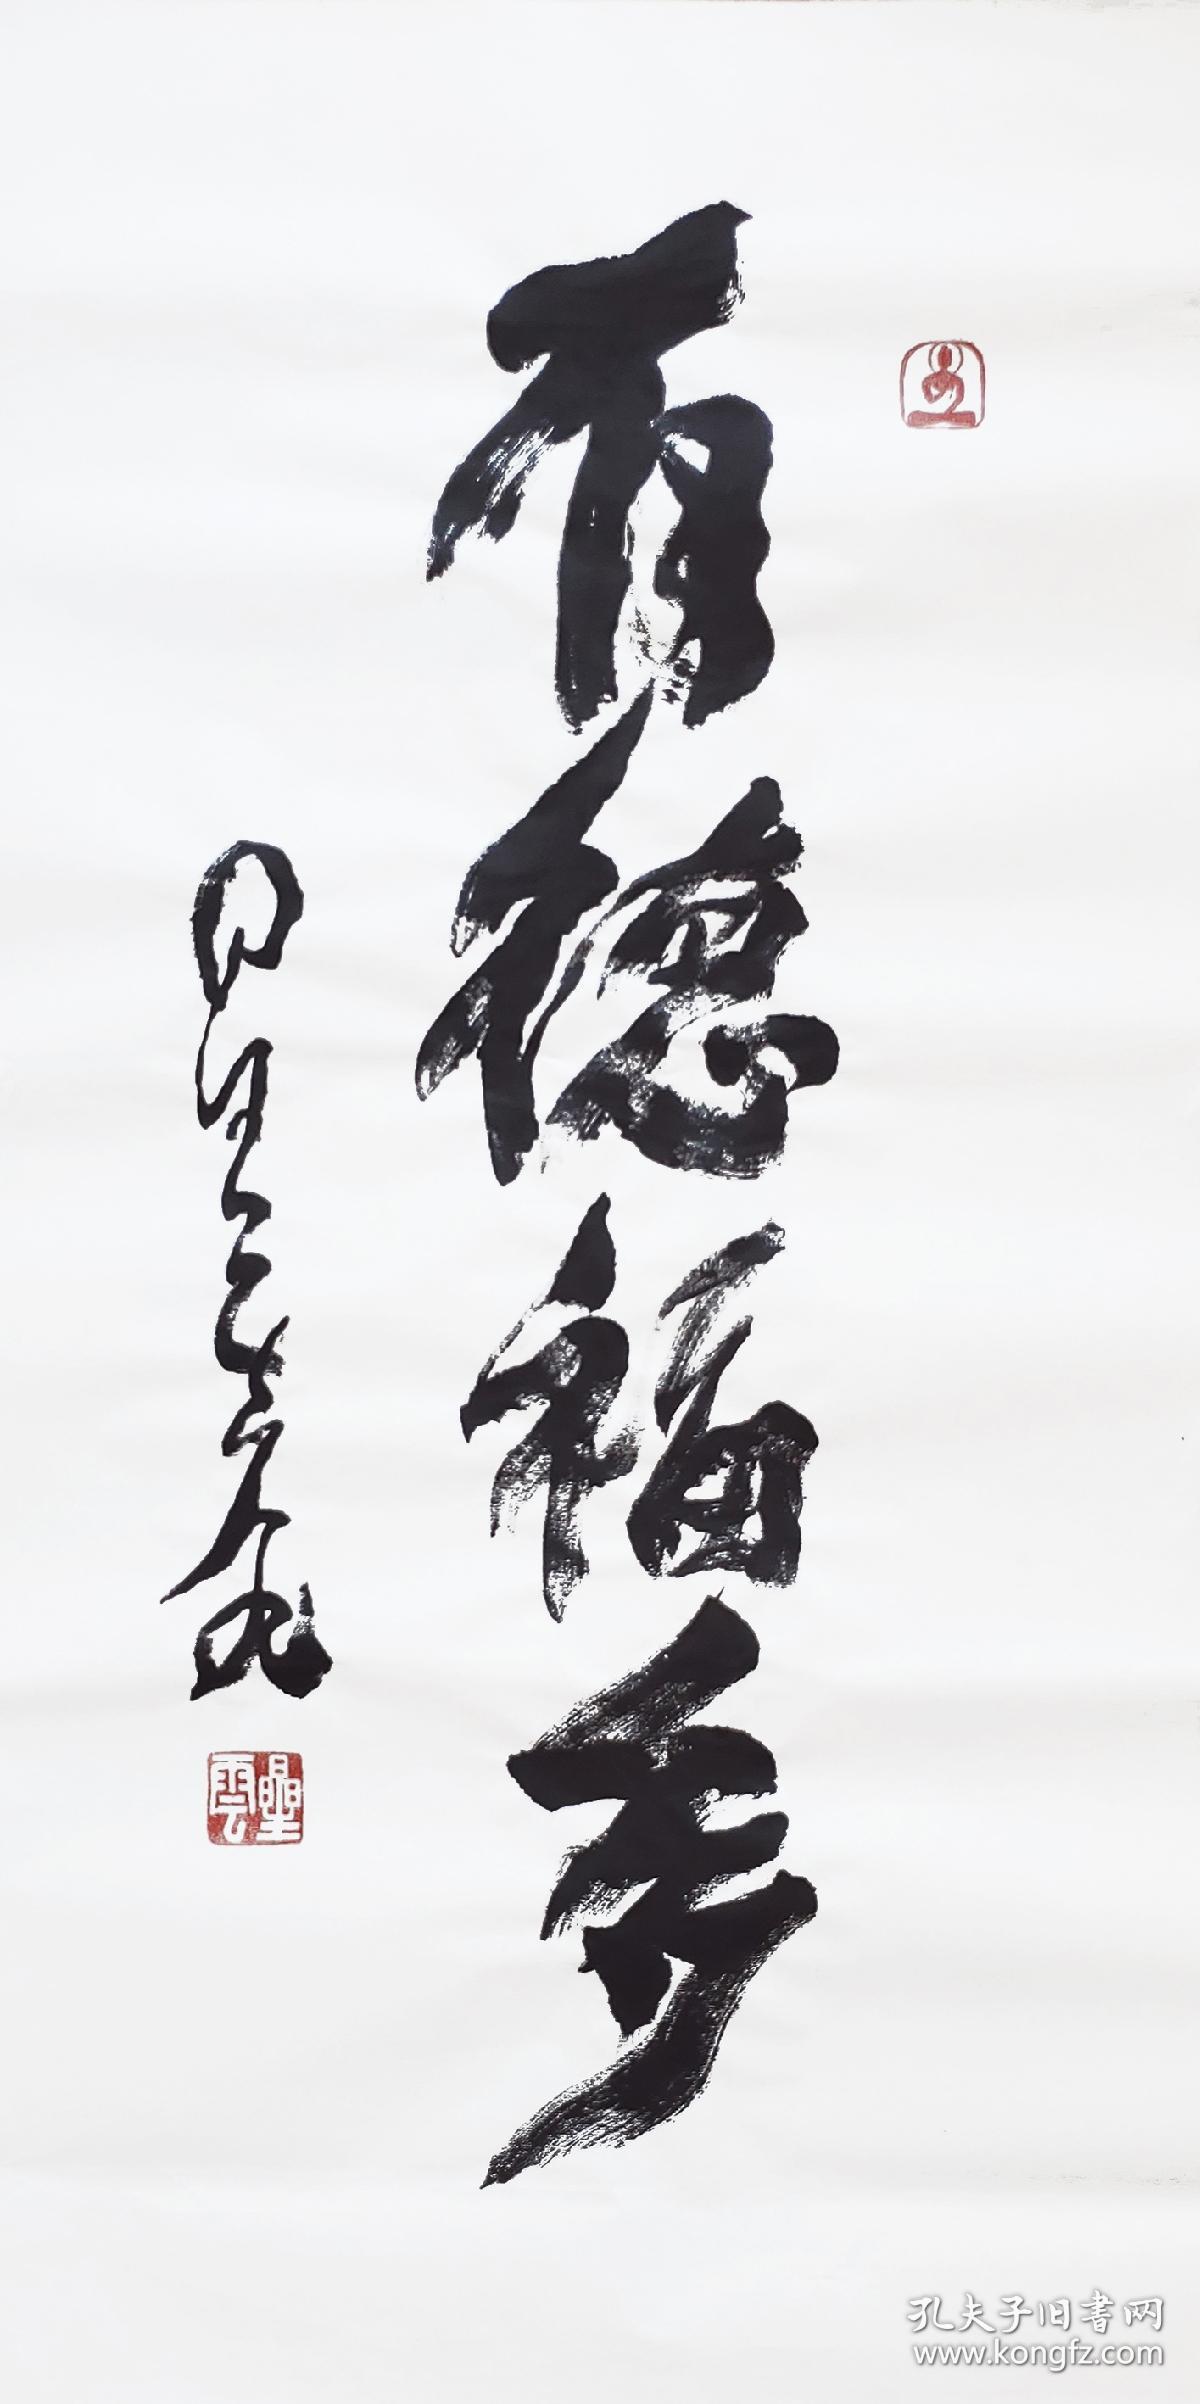 有德福多
星雲
星雲
孔夫子旧书网
www.kongfz.com